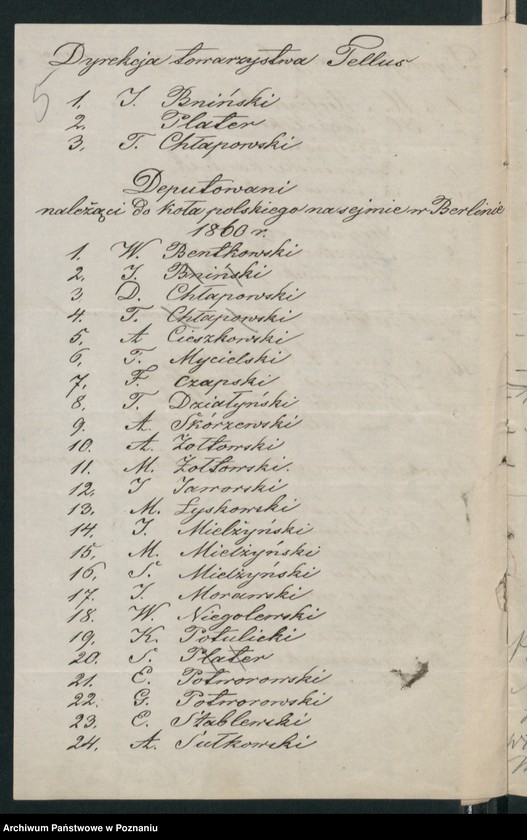 Dyrekcja towarzystwa Tellus
1. I. Bniński
2. Plater
3. T. Chłapowski
Deputowani
należący do koła polskiego na sejmie w Berlinie
1860 r.
1. W. Bentkowski
2. I. Bniński
3 D. Chłapowski
4. T. Chłapowski
5, A Cieszkowski
6, T. Mycielski
7, F. Czapski
8, T. Działyński
9. A. Skórzewski
10. A. Żołtowski
11. M. Żołtowski.
12. I Jaworski
13. M. Łyskowski
14. I. Mielżyński
15. M. Mielżyński
16, S. Mielżyński
17. I. Morawski
18. W. Niegolewski
19, K. Potulicki
20. S. Plater
21. E. Potworowski
22. G. Potworowski
23. E. Stablewski
24. A. Sułkowski
Archiwum Państwowe w Poznaniu